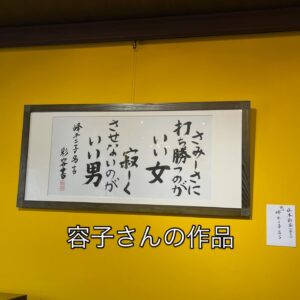 さみーさに
打ち勝つのが
いい女
寂ーく
させないのが
いい男
容子さんの作品